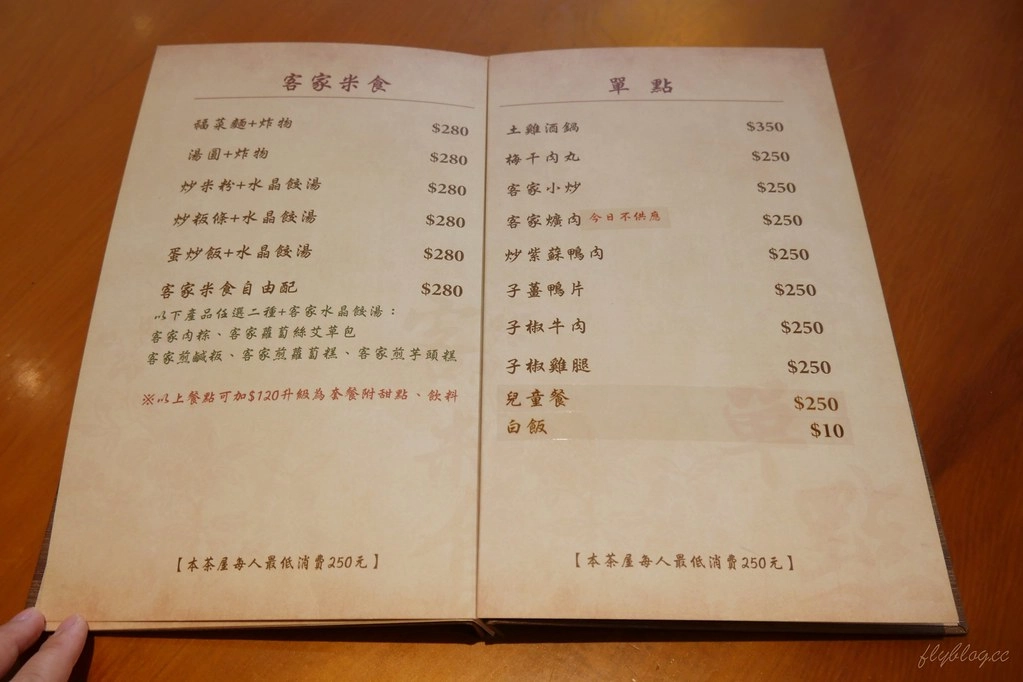 客家米食
福菜麵+炸物 $280
湯圓+炸物 $280
炒米粉+水晶餃湯 $280
炒粄條+水晶餃湯 $280
蛋炒飯+水晶餃湯 $280
客家米食自由配 $280
以下產品任選二種+客家水晶餃湯：
客家肉粽、客家蘿蔔絲艾草包
客家煎鹹粄、客家煎蘿蔔糕、客家煎芋頭糕
※以上餐點可加$120升級為套餐附甜點、飲料
【本茶屋每人最低消費250元】
單 點
土雞酒鍋 $350
梅干肉丸 $250
客家小炒 $250
客家爌肉 今日不供應 $250
炒紫蘇鴨肉 $250
子薑鴨片 $250
子椒牛肉 $250
子椒雞腿 $250
兒童餐 $250
白飯 $10
【本茶屋每人最低消費250元】
flyblog.cc